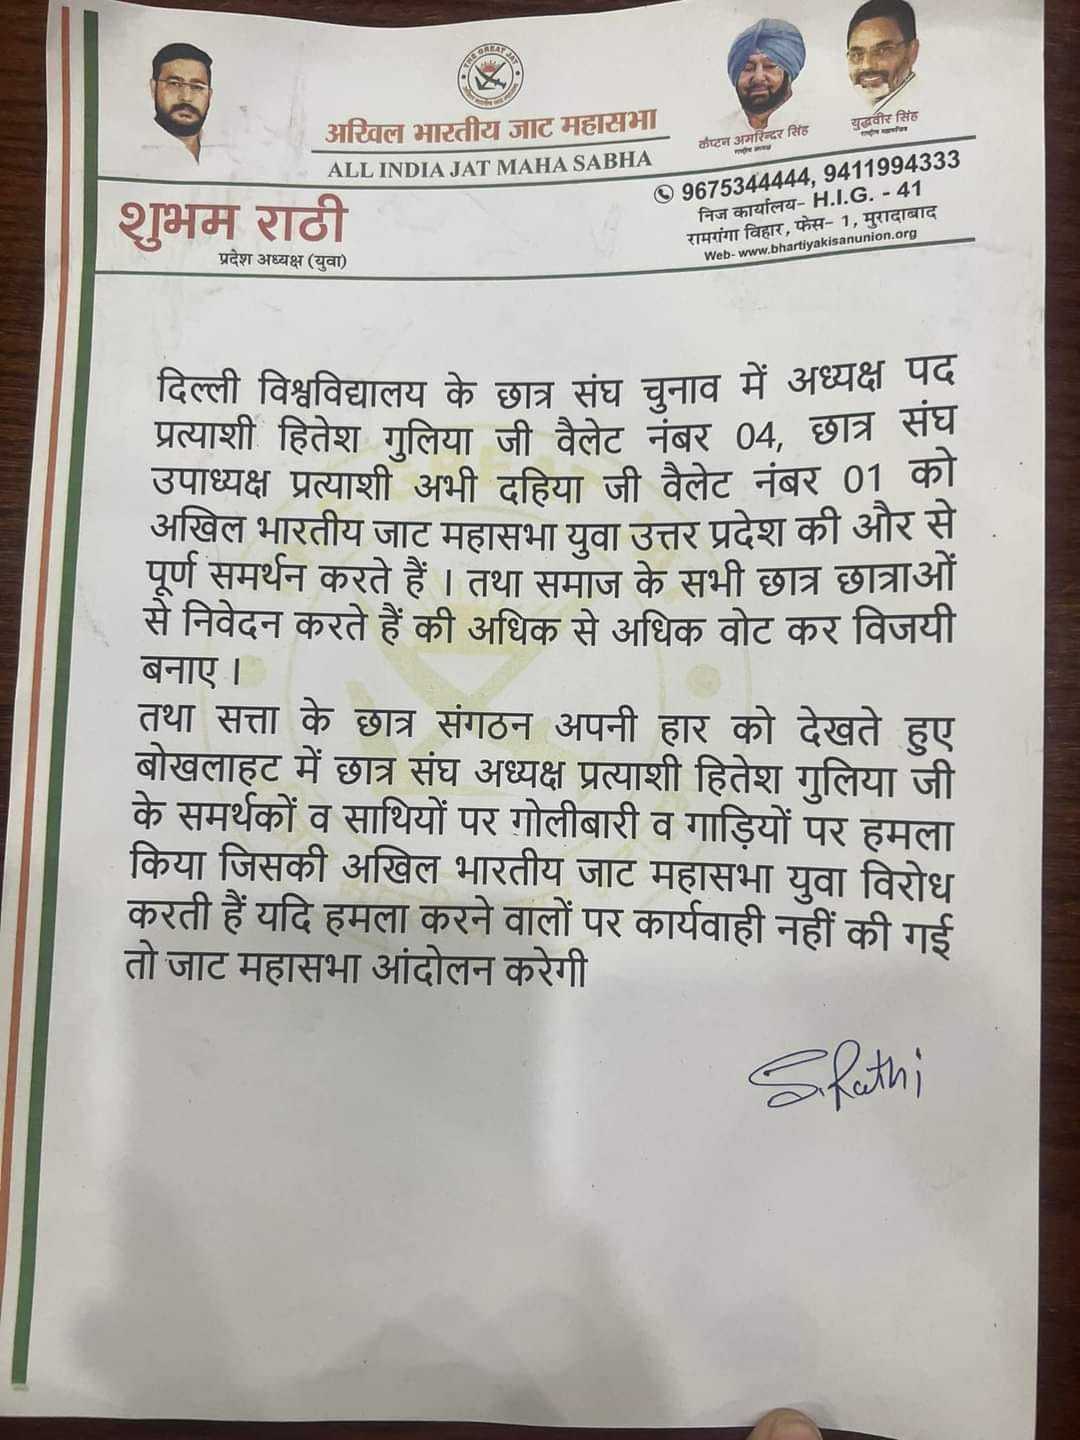 THE GREAT JAT
अखिल भारतीय जाट महासभा
ALL INDIA JAT MAHA SABHA
कैप्टन अमरिन्दर सिंह
राष्ट्रीय अध्यक्ष
युद्धवीर सिंह
राष्ट्रीय महासचिव
शुभम राठी
प्रदेश अध्यक्ष (युवा)
9675344444, 9411994333
निज कार्यालय- H.I.G. - 41
रामगंगा विहार, फेस- 1, मुरादाबाद
Web- www.bhartiyakisanunion.org
दिल्ली विश्वविद्यालय के छात्र संघ चुनाव में अध्यक्ष पद
प्रत्याशी हितेश गुलिया जी वैलेट नंबर 04, छात्र संघ
उपाध्यक्ष प्रत्याशी अभी दहिया जी वैलेट नंबर 01 को
अखिल भारतीय जाट महासभा युवा उत्तर प्रदेश की और से
पूर्ण समर्थन करते हैं । तथा समाज के सभी छात्र छात्राओं
से निवेदन करते हैं की अधिक से अधिक वोट कर विजयी
बनाए ।
तथा सत्ता के छात्र संगठन अपनी हार को देखते हुए
बोखलाहट में छात्र संघ अध्यक्ष प्रत्याशी हितेश गुलिया जी
के समर्थकों व साथियों पर गोलीबारी व गाड़ियों पर हमला
किया जिसकी अखिल भारतीय जाट महासभा युवा विरोध
करती हैं यदि हमला करने वालों पर कार्यवाही नहीं की गई
तो जाट महासभा आंदोलन करेगी
S. Rathi